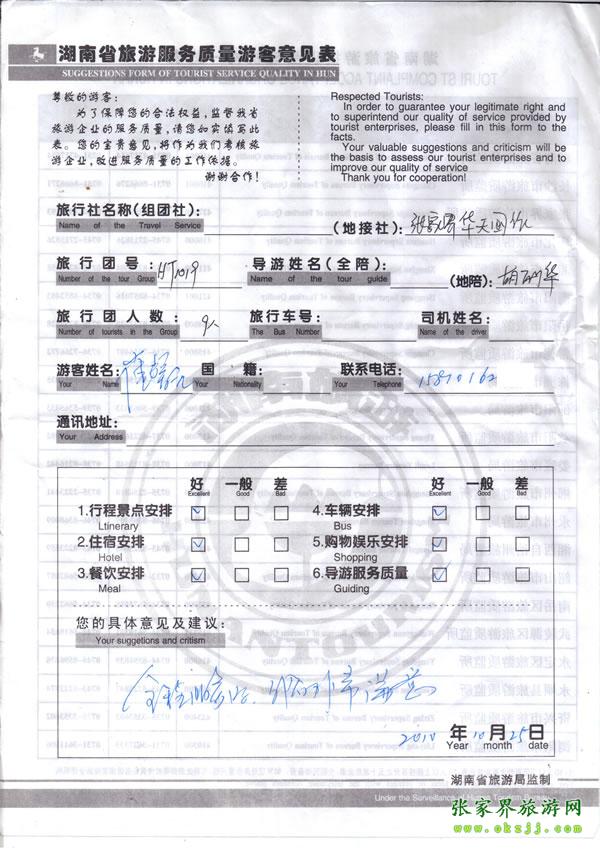 湖南省旅游服务质量游客意见表
SUGGESTIONS FORM OF TOURIST SERVICE QUALITY IN HUN
尊敬的游客:
为了保障您的合法权益,监督我省
旅游企业的服务质量,请您如实填写此
表。您的宝贵意见,将作为我们考核旅
游企业,改进服务质量的工作依据。
谢谢合作!
Respected Tourists:
In order to guarantee your legitimate right and
to superintend our quality of service provided by
tourist enterprises, please fill in this form to the
facts.
Your valuable suggestions and criticism will be
the basis to assess our tourist enterprises and to
improve our quality of service
Thank you for cooperation!
旅行社名称(组团社): (地接社): 张家界华天国旅
Name of the Travel Service
旅行团号: HT1019 导游姓名(全陪) (地陪):
Number of the tour Group Name of the tour guide
旅行团人数: 9人 旅行车号: 司机姓名:
Number of tourists in the Group The Bus Number Name of the driver
游客姓名: 国籍: 联系电话:
Your Name Your Nationality Your Telephone
通讯地址:
Your Address
好 一般 差 好 一般 差
Excellent Good Bad Excellent Good Bad
1.行程景点安排 4.车辆安排
Ltinerary Bus
2.住宿安排 5.购物娱乐安排
Hotel Shopping
3.餐饮安排 6.导游服务质量
Meal Guiding
您的具体意见及建议:
Your suggetions and critism
2010 年 10 月 25 日
Year month date
湖南省旅游局监制
Under the Surveillance of Hunan Tourism Bureau
张家界旅游网
www.okzjj.com